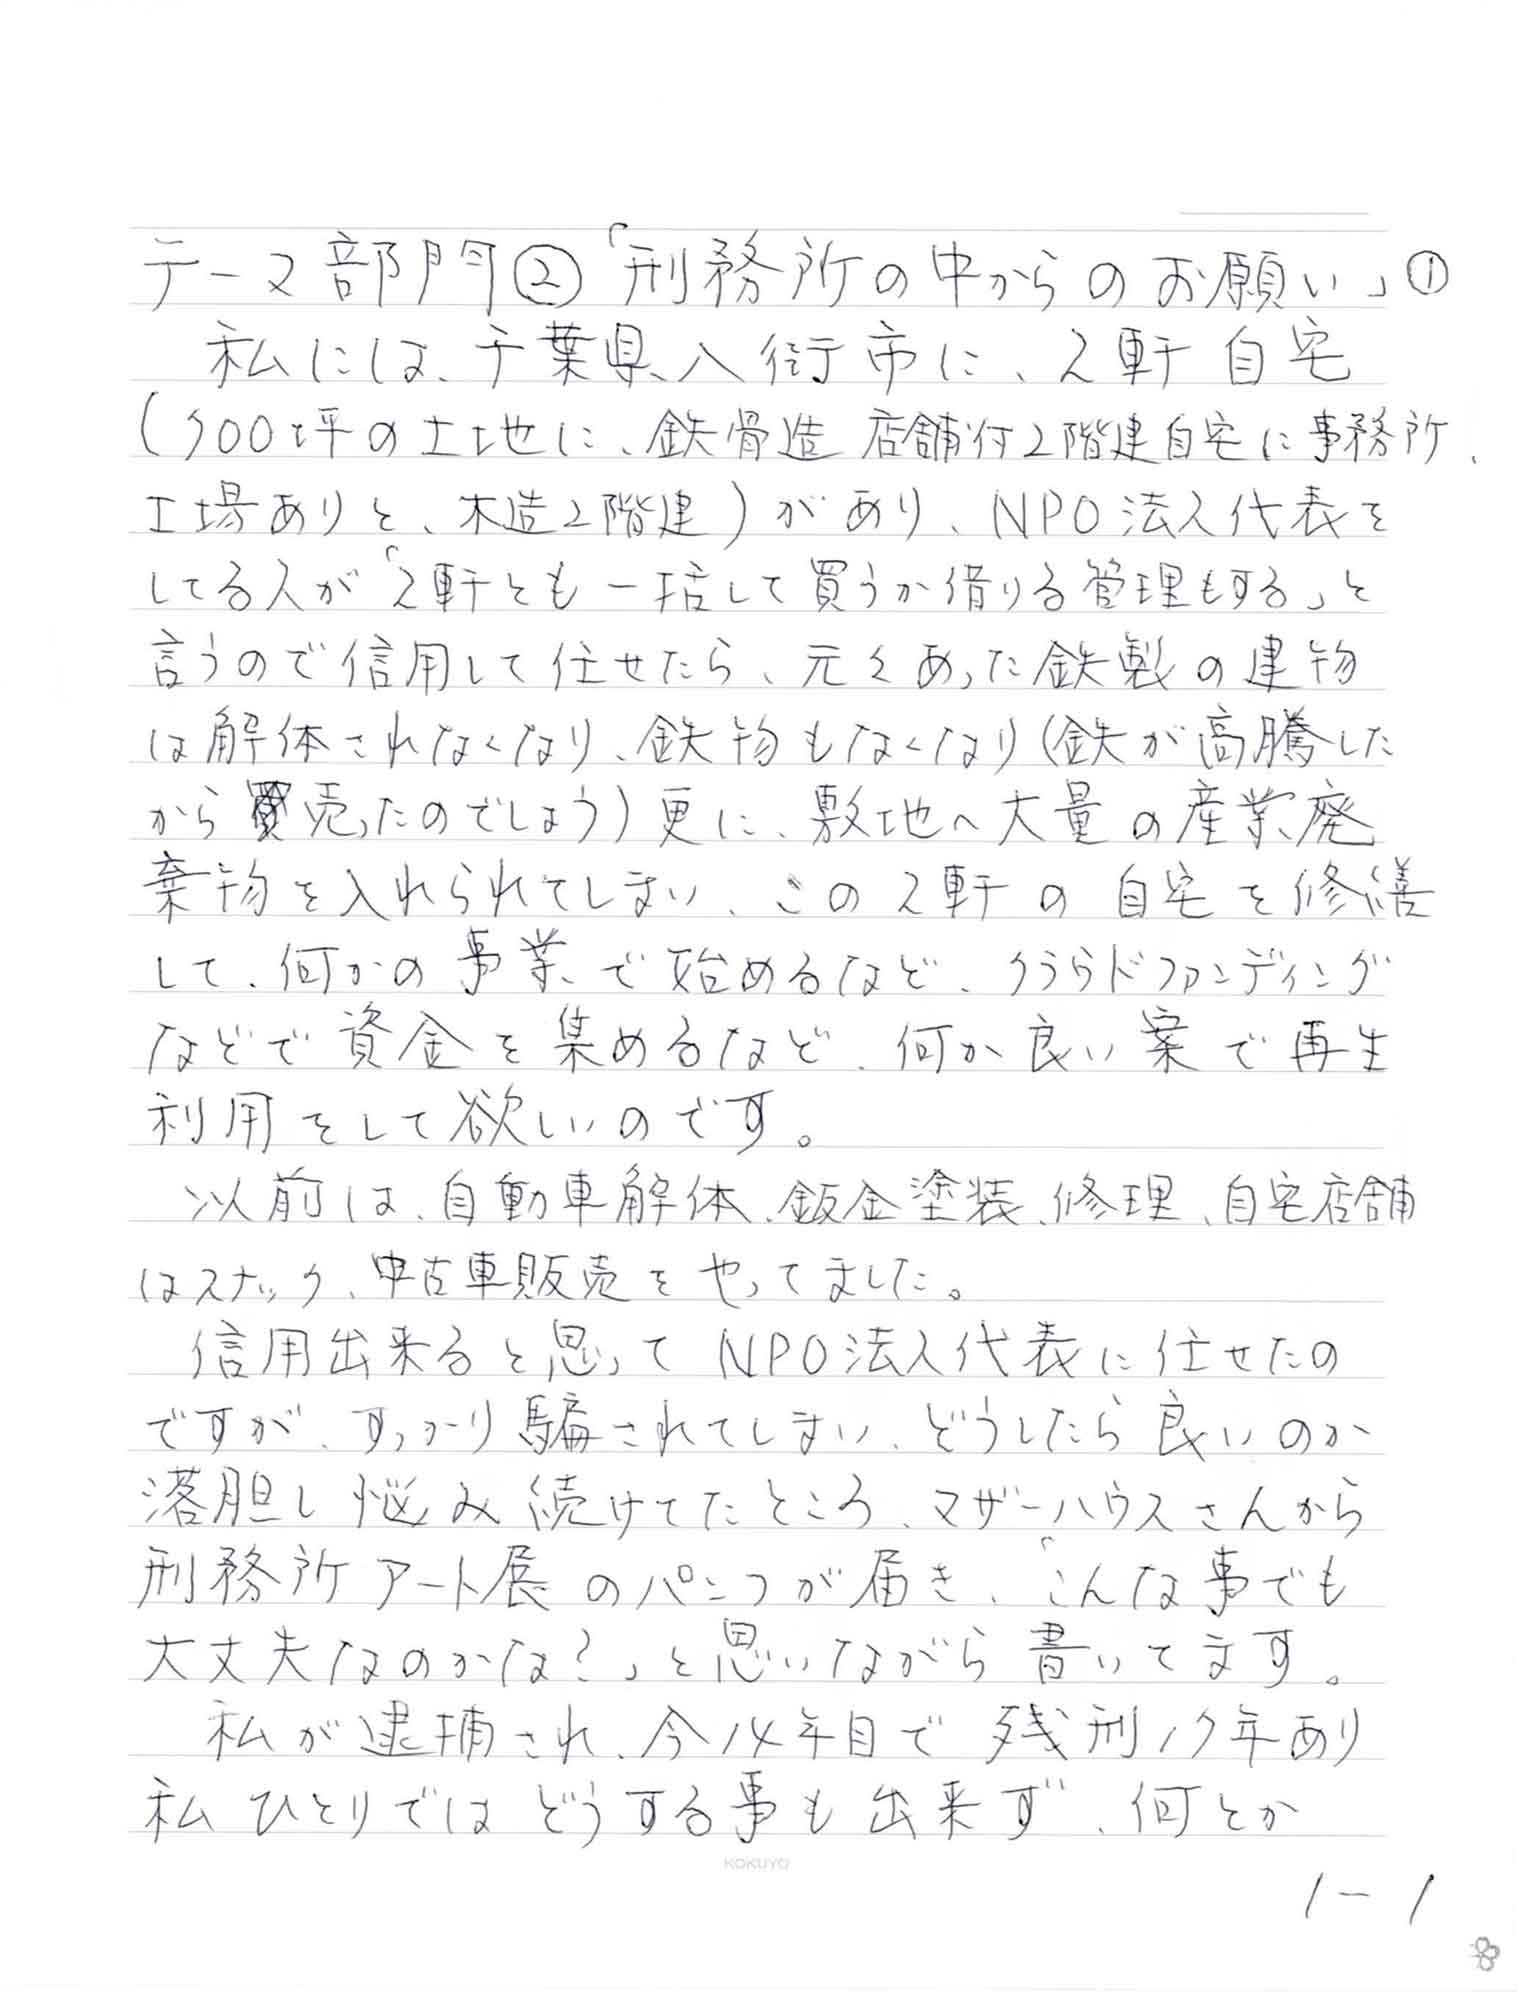 テーマ部門②「刑務所の中からのお願い」①
私には、千葉県八街市に、2軒自宅
(900坪の土地に、鉄骨造 店舗付2階建自宅に事務所、
工場ありと、木造2階建)があり、NPO法人代表を
してる人が「2軒とも一括して買うか借りる管理もする」と
言うので信用して任せたら、元々あった鉄製の建物
は解体されなくなり、鉄物もなくなり(鉄が高騰した
から売ったのでしょう)更に、敷地へ大量の産業廃
棄物を入れられてしまい、この2軒の自宅を修繕
して、何かの事業で始めるなど、クラウドファンディング
などで資金を集めるなど、何か良い案で再生
利用をして欲しいのです。
以前は、自動車解体、鈑金塗装、修理、自宅店舗
はスナック、中古車販売をやってました。
信用出来ると思ってNPO法人代表に任せたの
ですが、すっかり騙されてしまい、どうしたら良いのか
落胆し悩み続けてたところ、マザーハウスさんから
刑務所アート展のパンフが届き、「こんな事でも
大丈夫なのかな?」と思いながら書いてます。
私が逮捕され、今14年目で残刑19年あり
私ひとりではどうする事も出来ず、何とか
KOKUYO
1-1